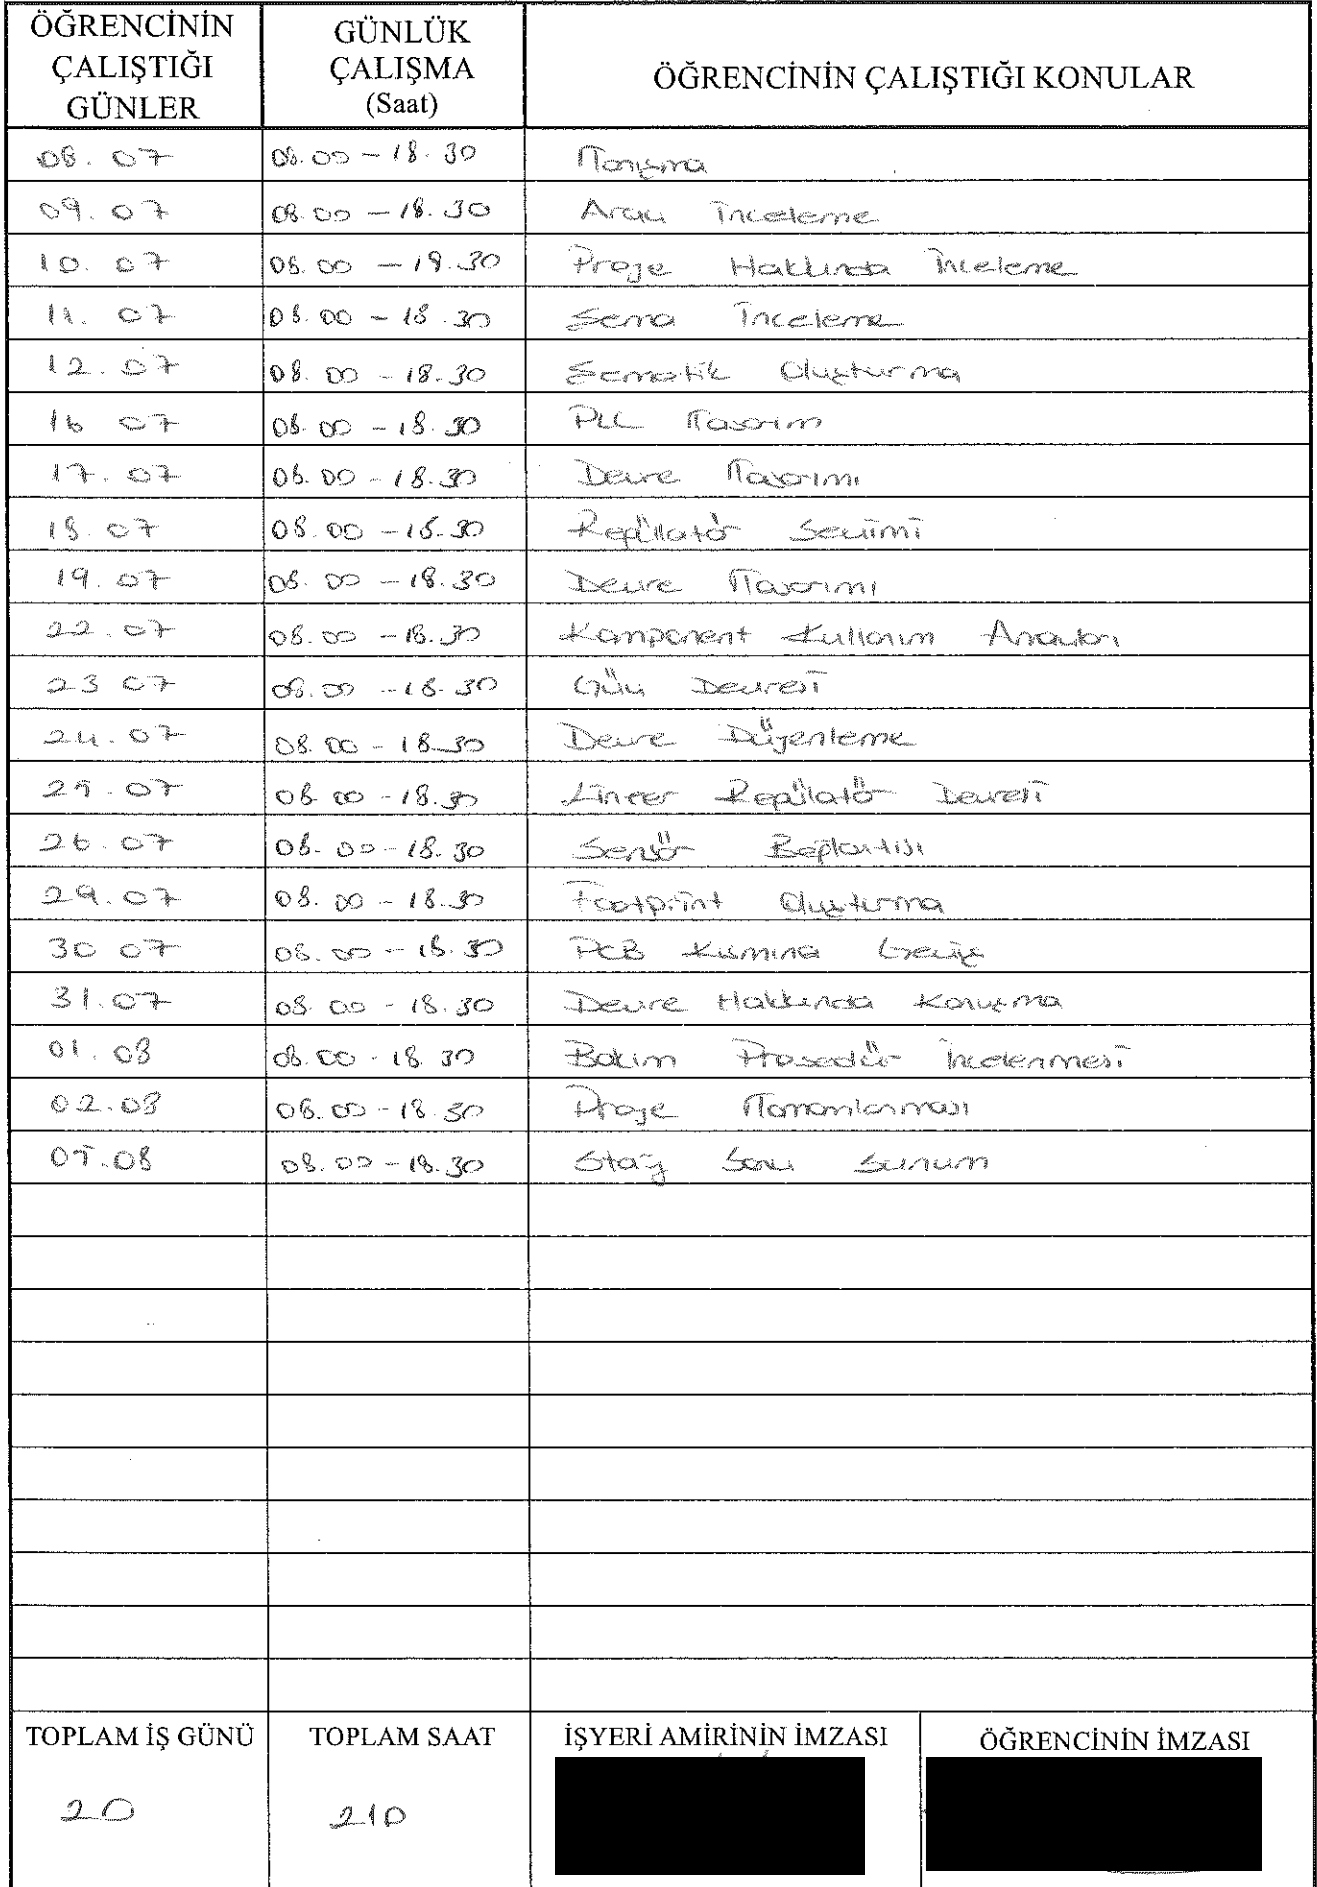 ÖĞRENCİNİN ÇALIŞTIĞI GÜNLER | GÜNLÜK ÇALIŞMA (Saat) | ÖĞRENCİNİN ÇALIŞTIĞI KONULAR
08.07 08.00 – 18.30 Tanışma
09.07 08.00 – 18.30 Araç İnceleme
10.07 08.00 – 18.30 Proje Hakkında İnceleme
11.07 08.00 – 18.30 Şema İnceleme
12.07 08.00 – 18.30 Şematik Oluşturma
16 07 08.00 – 18.30 Tasarım
17.07 08.00 – 18.30 Devre Tasarımı
18.07 08.00 – 18.30 Regülatör Seçimi
19.07 08.00 – 18.30 Devre Tasarımı
22.07 08.00 – 18.30 Komponent Kullanım Amaçları
23 07 08.00 – 18.30 Güç Devresi
24.07 08.00 – 18.30 Devre Düzenleme
25.07 08.00 – 18.30 Lineer Regülatör Devresi
26.07 08.00 – 18.30 Sensör Bağlantısı
29.07 08.00 – 18.30 Footprint Oluşturma
30 07 08.00 – 18.30 PCB Kısmına Geçiş
31.07 08.00 – 18.30 Devre Hakkında Konuşma
01.08 08.00 – 18.30 Bakım Prosedür İncelenmesi
02.08 08.00 – 18.30 Proje Tamamlanması
05.08 08.00 – 18.30 Staj Sonu Sunum
TOPLAM İŞ GÜNÜ | TOPLAM SAAT | İŞYERİ AMİRİNİN İMZASI | ÖĞRENCİNİN İMZASI
20 210